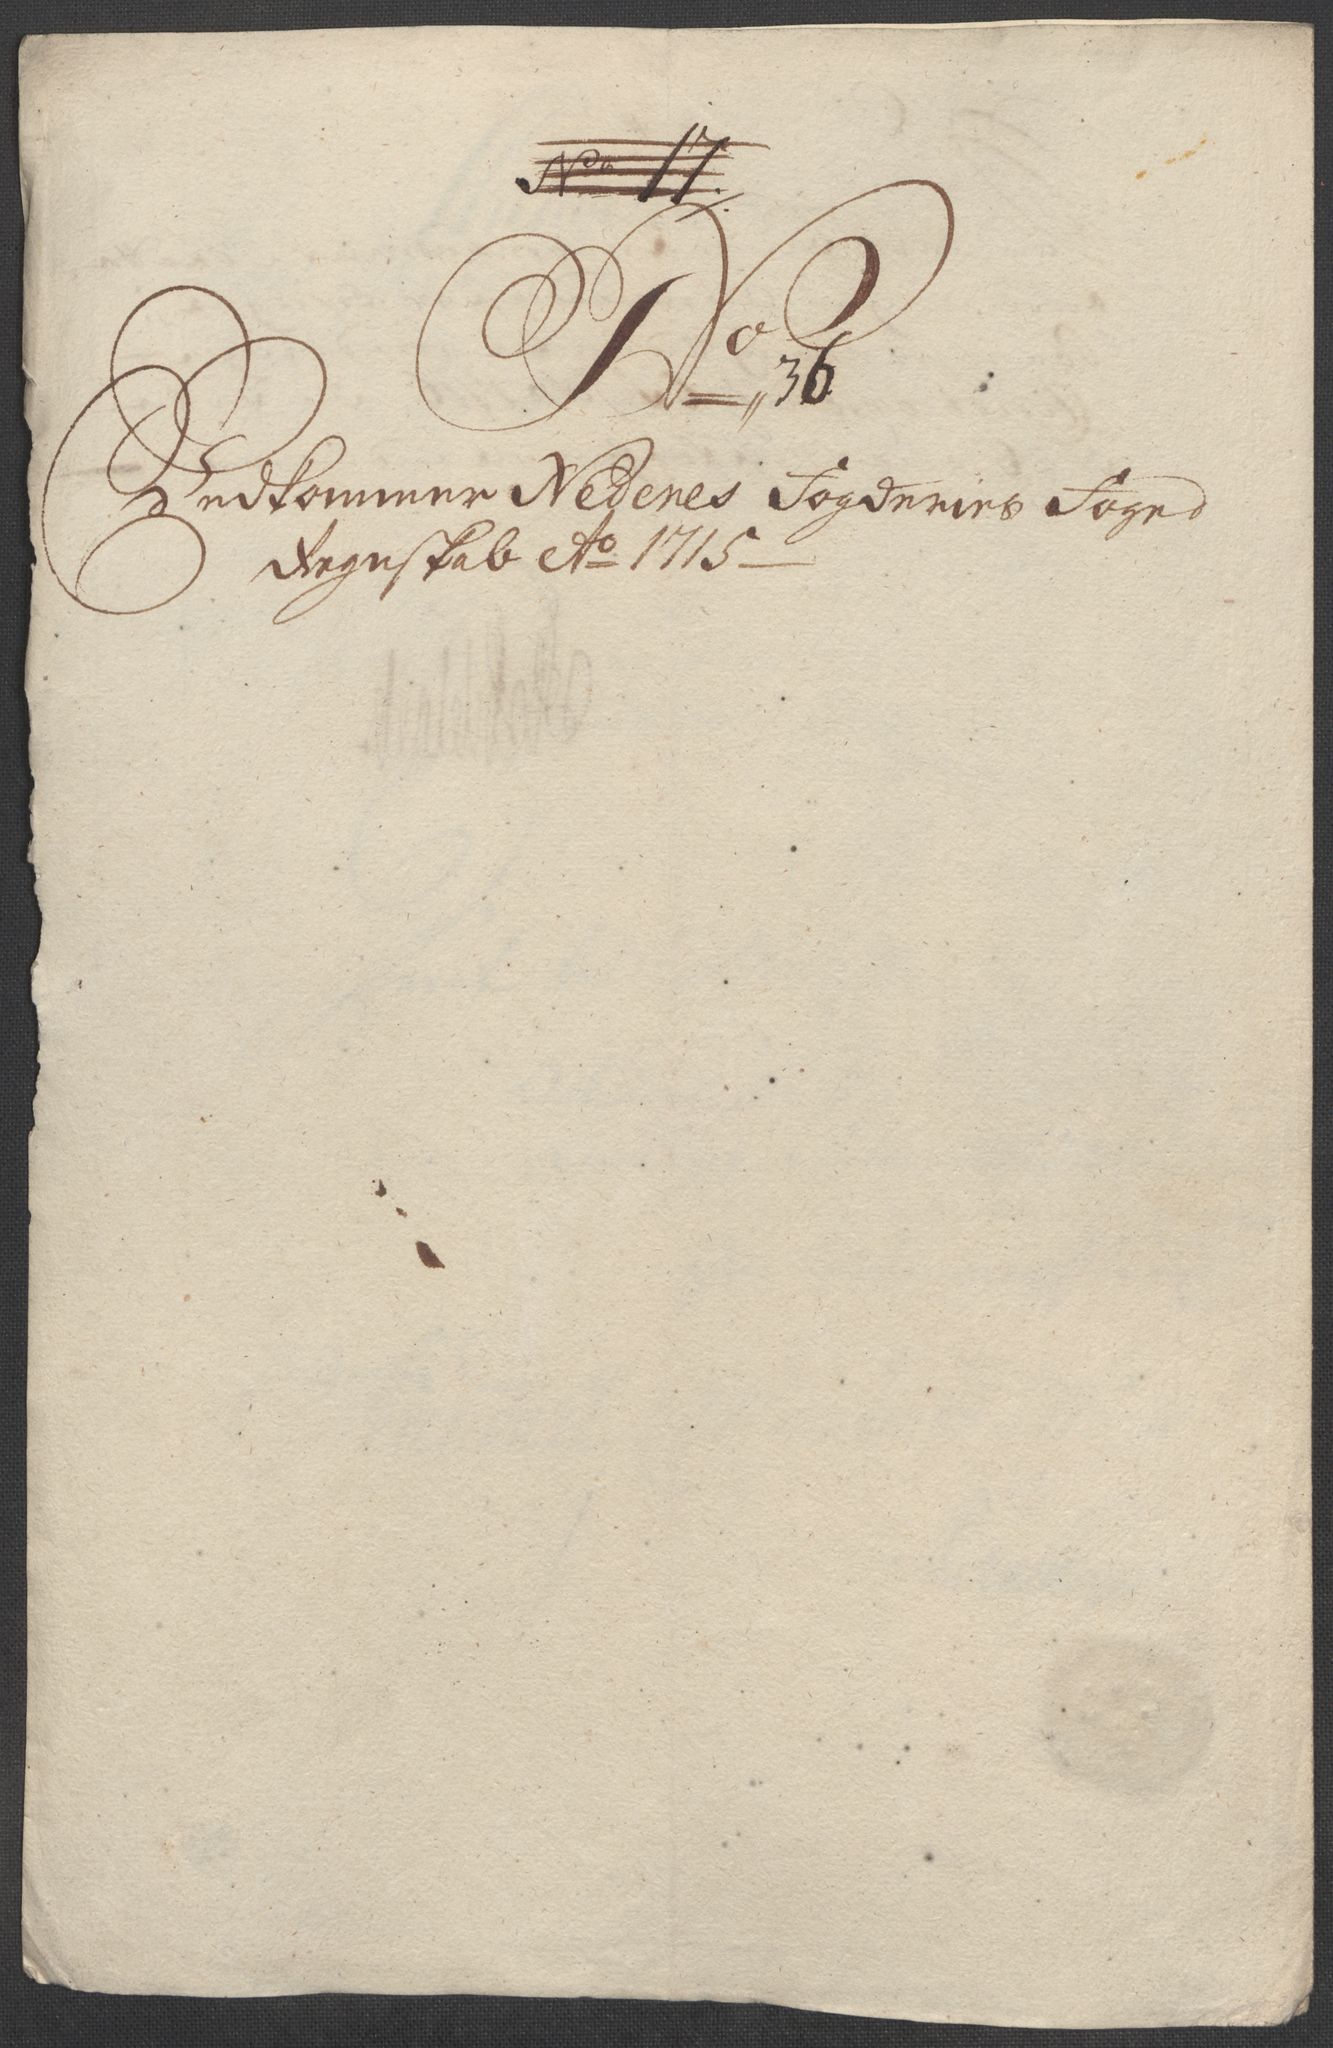 No 17.
No 36
Vedkommer Nedenes Fogderies Foged
Regnskab Ao 1715